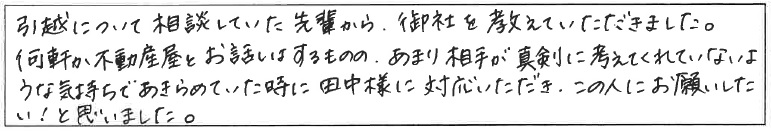 引越について相談していた先輩から、御社を教えていただきました。
何軒か不動産屋とお話しはするものの、あまり相手が真剣に考えてくれていないよ
うな気持ちであきらめていた時に田中様に対応いただき、この人にお願いした
い!と思いました。